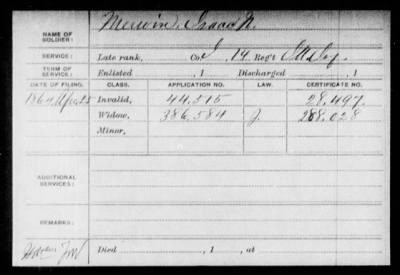 NAME OF SOLDIER: Merwin, Isaac N.
SERVICE: Late rank, Co. I, 14 Reg't Ills Inf.
TERM OF SERVICE: Enlisted , 1 Discharged , 1
DATE OF FILING. CLASS. APPLICATION NO. LAW. CERTIFICATE NO.
1864 Apr 25 Invalid, 44.315 28.497.
Widow, 386.584 J. 288.028
Minor,
ADDITIONAL SERVICES:
REMARKS:
Died , 1 , at